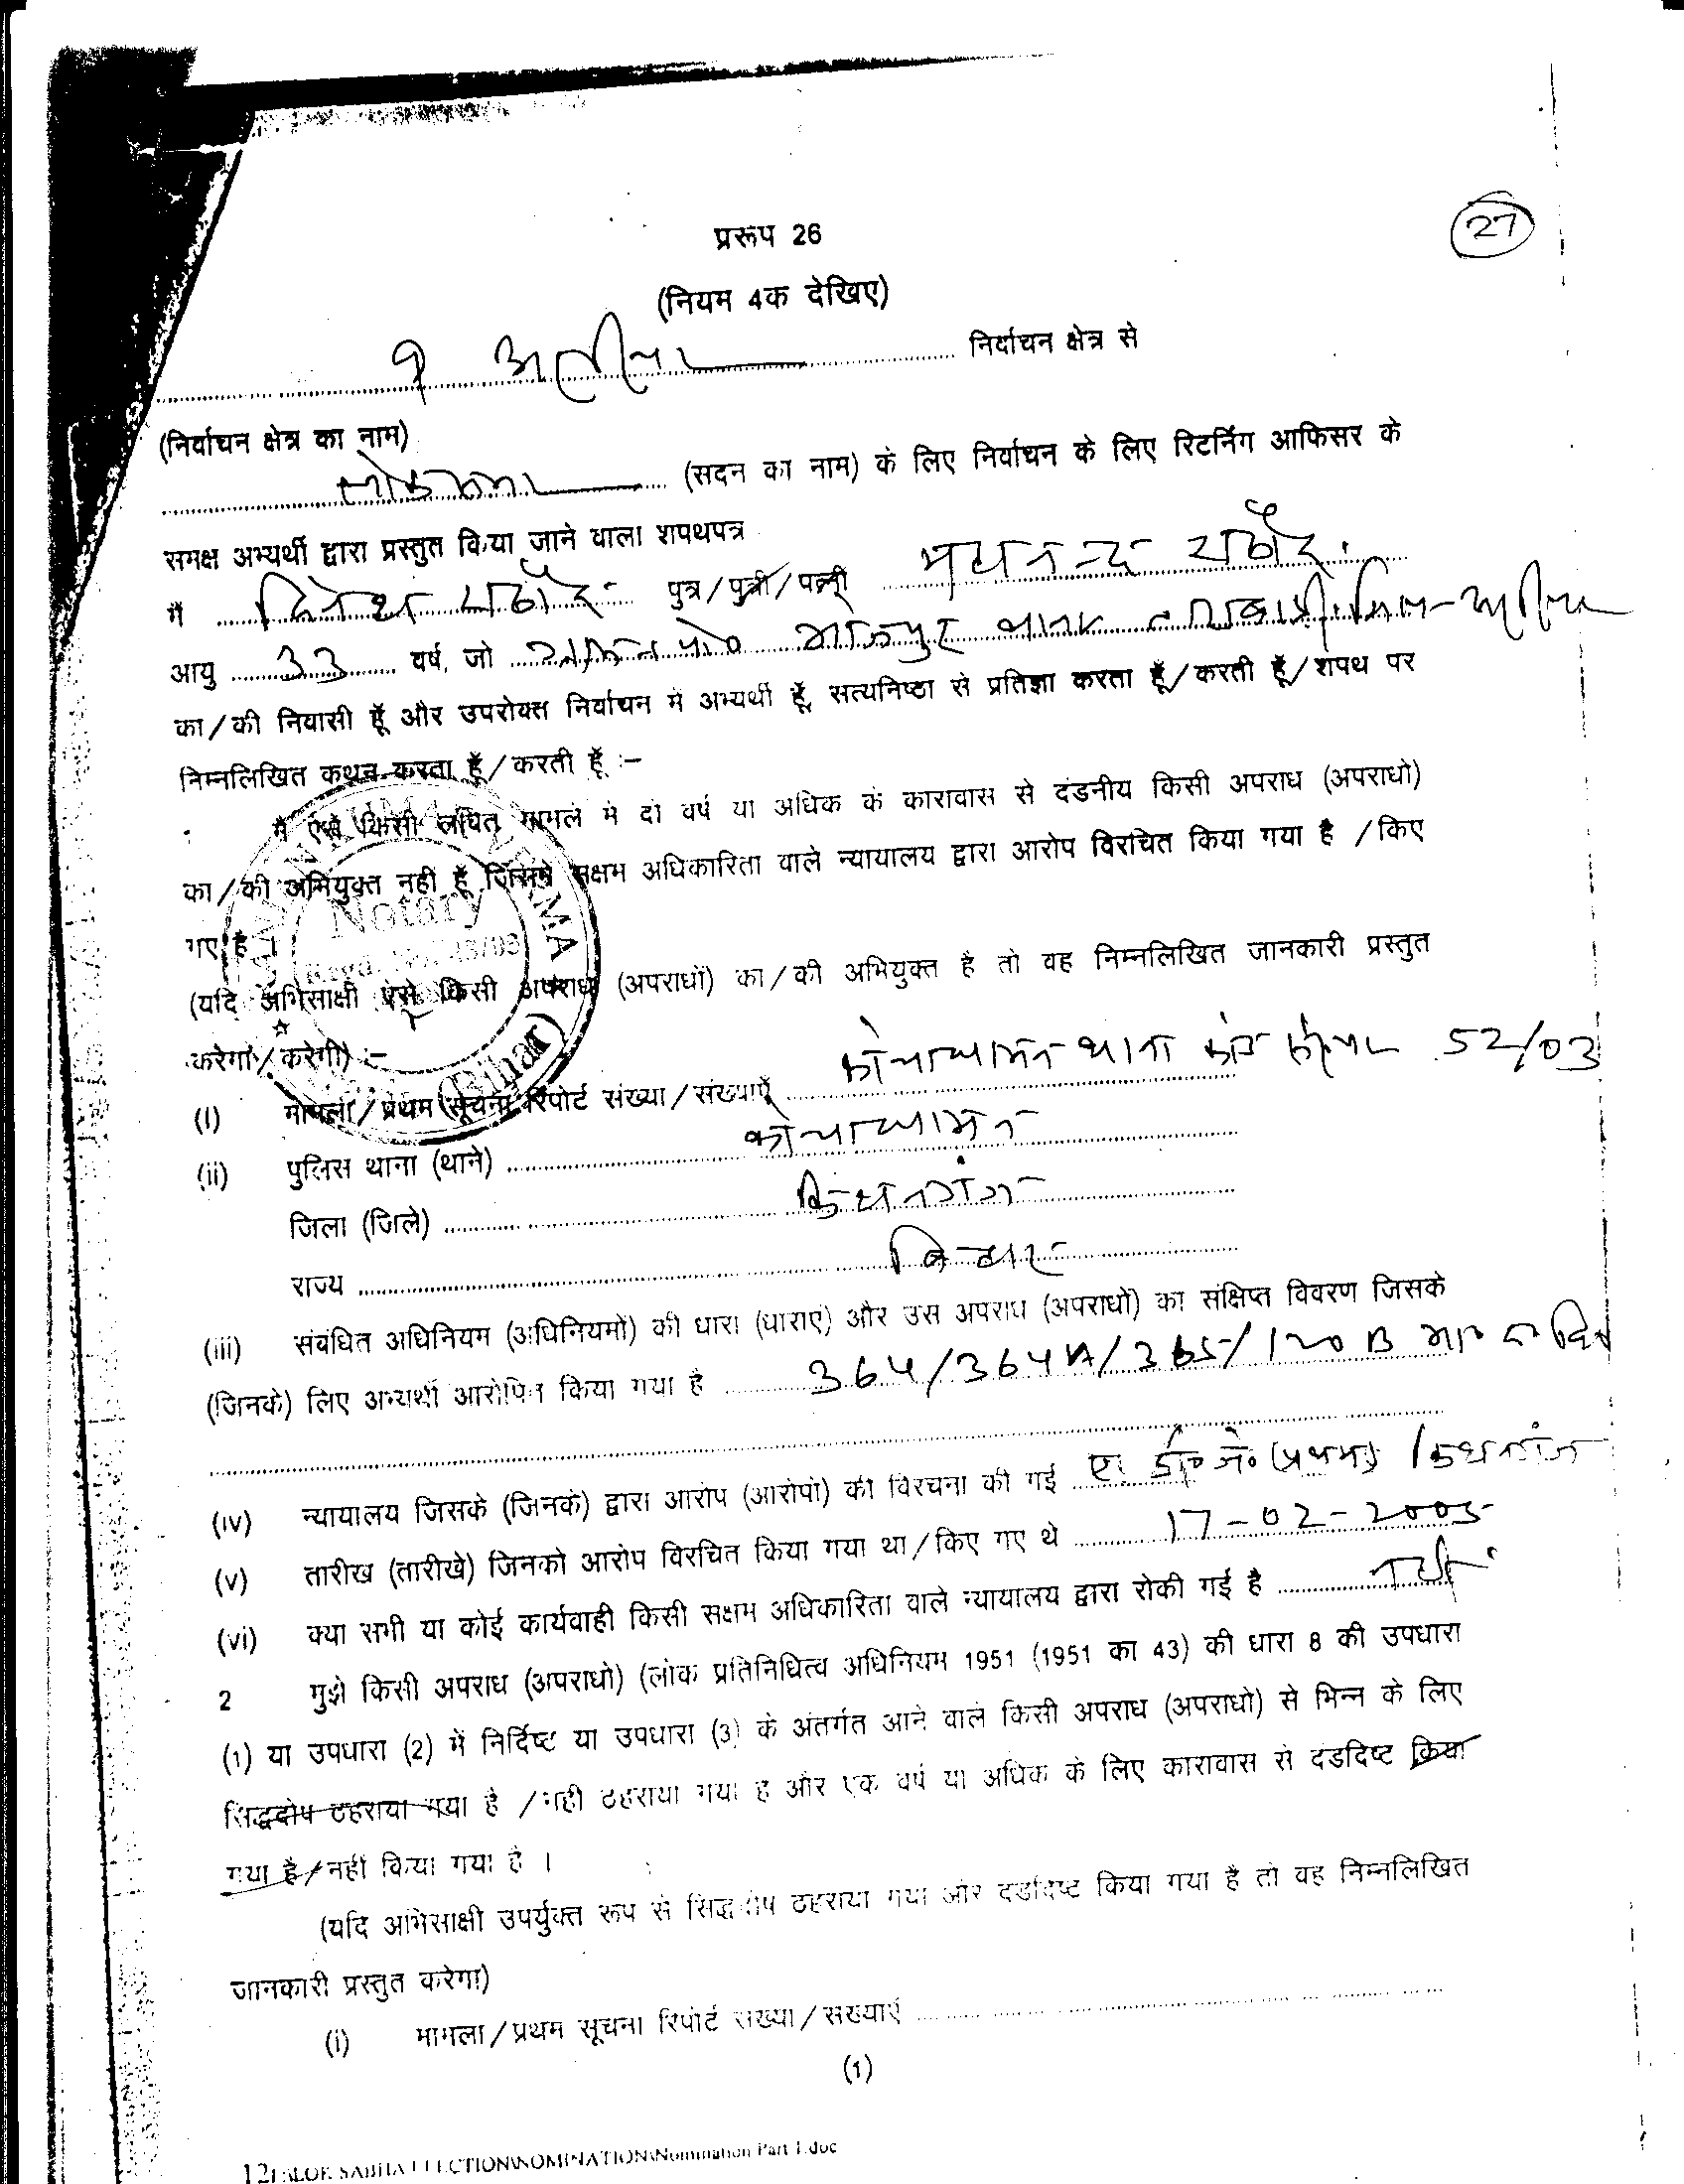 27
प्ररूप 26
(नियम 4क देखिए)
9 अररिया निर्वाचन क्षेत्र से
(निर्वाचन क्षेत्र का नाम)
लोकसभा (सदन का नाम) के लिए निर्वाचन के लिए रिटर्निंग आफिसर के
समक्ष अभ्यर्थी द्वारा प्रस्तुत किया जाने वाला शपथपत्र
मैं दिनेश राठौर पुत्र/पुत्री/पत्नी राठौर
आयु 33 वर्ष, जो
का/की निवासी हूँ और उपरोक्त निर्वाचन में अभ्यर्थी हूँ, सत्यनिष्ठा से प्रतिज्ञा करता हूँ/करती हूँ/शपथ पर
निम्नलिखित कथन करता हूँ/करती हूँ :–
मैं ऐसे किसी लंबित मामले में दो वर्ष या अधिक के कारावास से दंडनीय किसी अपराध (अपराधों)
का/की अभियुक्त नहीं हूँ जिसमें सक्षम अधिकारिता वाले न्यायालय द्वारा आरोप विरचित किया गया है /किए
गए है ।
(यदि अभिसाक्षी ऐसे किसी अपराध (अपराधों) का/की अभियुक्त है तो वह निम्नलिखित जानकारी प्रस्तुत
करेगा/करेगी) :–
(i) मामला/प्रथम सूचना रिपोर्ट संख्या/संख्याएँ कोचाधामन थाना कांड संख्या 52/03
(ii) पुलिस थाना (थाने) कोचाधामन
जिला (जिले) किशनगंज
राज्य बिहार
(iii) संबंधित अधिनियम (अधिनियमों) की धारा (धाराएं) और उस अपराध (अपराधों) का संक्षिप्त विवरण जिसके
(जिनके) लिए अभ्यर्थी आरोपित किया गया है 364/364A/365/120B भा० द० वि०
(iv) न्यायालय जिसके (जिनके) द्वारा आरोप (आरोपों) की विरचना की गई ए० डी० जे० (प्रथम) किशनगंज
(v) तारीख (तारीखे) जिनको आरोप विरचित किया गया था/किए गए थे 17-02-2005
(vi) क्या सभी या कोई कार्यवाही किसी सक्षम अधिकारिता वाले न्यायालय द्वारा रोकी गई है नहीं
2 मुझे किसी अपराध (अपराधो) (लोक प्रतिनिधित्व अधिनियम 1951 (1951 का 43) की धारा 8 की उपधारा
(1) या उपधारा (2) में निर्दिष्ट या उपधारा (3) के अंतर्गत आने वाले किसी अपराध (अपराधो) से भिन्न के लिए
सिद्धदोष ठहराया गया है /नही ठहराया गया है और एक वर्ष या अधिक के लिए कारावास से दंडदिष्ट किया
गया है/नहीं किया गया है ।
(यदि अभिसाक्षी उपर्युक्त रूप से सिद्धदोष ठहराया गया और दंडादिष्ट किया गया है तो वह निम्नलिखित
जानकारी प्रस्तुत करेगा)
(i) मामला/प्रथम सूचना रिपोर्ट संख्या/संख्याएं
(1)
12 LOK SABHA ELECTION\NOMINATION\Nomination Part 1.doc
Notary
(Bihar)